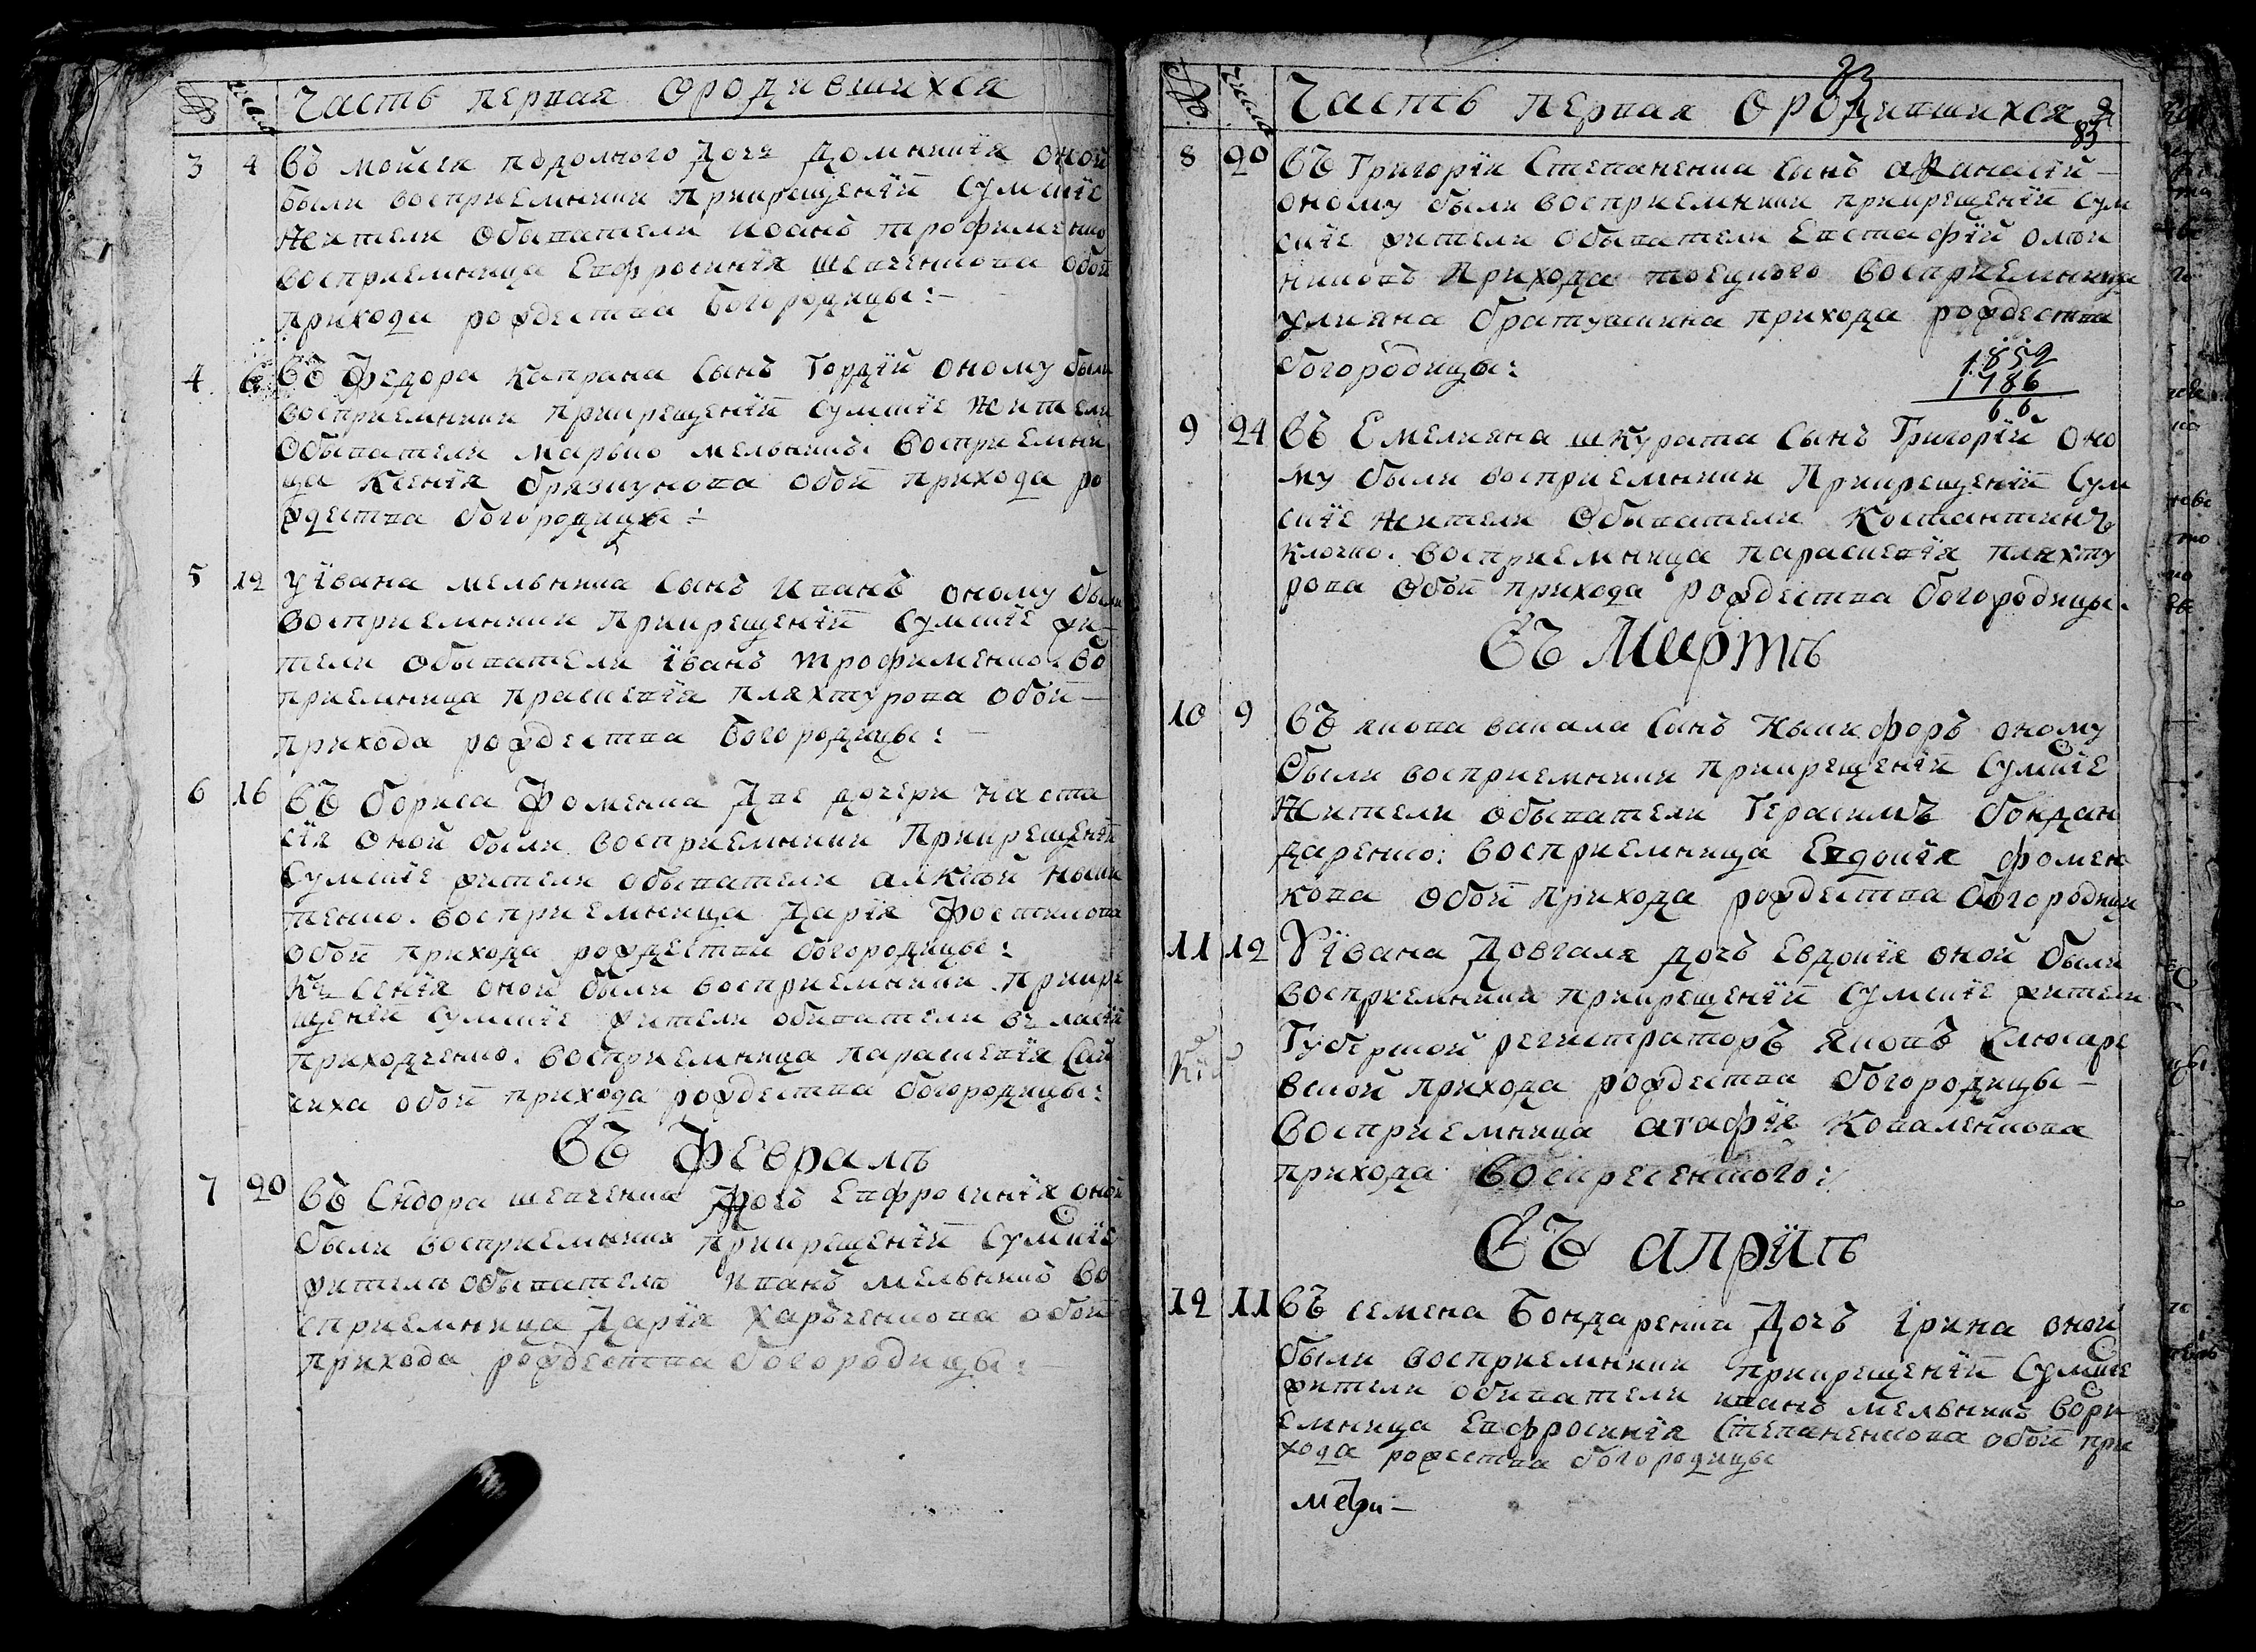 № числа Часть первая Ородившихся
3 4 Въ мойсея подолного Дочь Домникія оной
были восприемники Прикрещеніи Сумскіе
Жители Обыватели Иоанъ трофименко
восприемница Евфросинія шевченкова обой
прихода рождества Богородицы:
4 6 Въ Федора Капрана Сынъ Гордій оному были
восприемники Прикрещеніи Сумскіе Жители
Обыватели Марько мельникъ. Восприемни
ца Ксенія брязкунова обой прихода ро
ждества богородицы:
5 12 У Івана мельника Сынъ Иванъ оному были
восприемники Прикрещеніи Сумскіе жи-
тели обыватели Іванъ трофименко. Во
приемница праскевія пляхтурова обой
прихода рождества Богородицы:
6 16 Въ бориса Фоменка Две дочери Наста
сія оной были восприемники Прикрещеніи
Сумскіе жители обыватели алксъй ныки
тенко. восприемница Дарія Фостикова
обой прихода рождества богородицы:
Къ Сенія оной были восприемники. Прикре
щеніи Сумскіе жители обиватели
приходченко. восприемница параскевія Сай
чиха обой прихода рождества богородицы:
Въ Февралъ
7 20 Въ Сидора шевченка Дочъ Евфросинія оной
были восприемники Прикрещеніи Сумскіе
жители обыватели Иванъ мельникъ Во
сприемница Дарія Харъченкова обой
прихода рождества богородицы:
№ числа Часть первая Ородившихся
83
8 20 Въ Григорія Степаненка Сынъ афанасій
оному были восприемники прикрещеніи Сум
скіе жители обыватели Евстафій олъй
никовъ Прихода троецкого восприемница
улияна братушкина прихода рождества
богородицы:
1852
1786
66
9 24 Въ Емелияна шкурата Сынъ Григорій оно
му были восприемники Прикрещеніи Сум
скіе Жители Обыватели Костантинъ
клочко. Восприемница параскевія пляхту
рова Обой прихода рождества богородицы.
Въ Мартъ
10 9 Въ якова вакала Синъ Ныкифоръ оному
были восприемники Прикрещеніи Сумскіе
Жители обыватели Герасимъ бондан
даренко: восприемница Евдокія фомен
кова обой прихода рождества богородици
11 12 У Івана Довгаля дочъ Евдокія оной были
восприемники прикрещеніи Сумскіе жители
Губернской регистраторъ Яковъ Слюсаре
вской прихода рождества богородицы
Восприемница агафія Коваленкова
прихода воскресенского:
Въ апріль
12 11 Въ семена Бондаренка Дочъ ірина оной
были восприемники прикрещеніи Сумскіе
жители обиватели иванъ мельникъ Вори
емница Евфросинія Степаненкова обой при
хода рожества богородицы